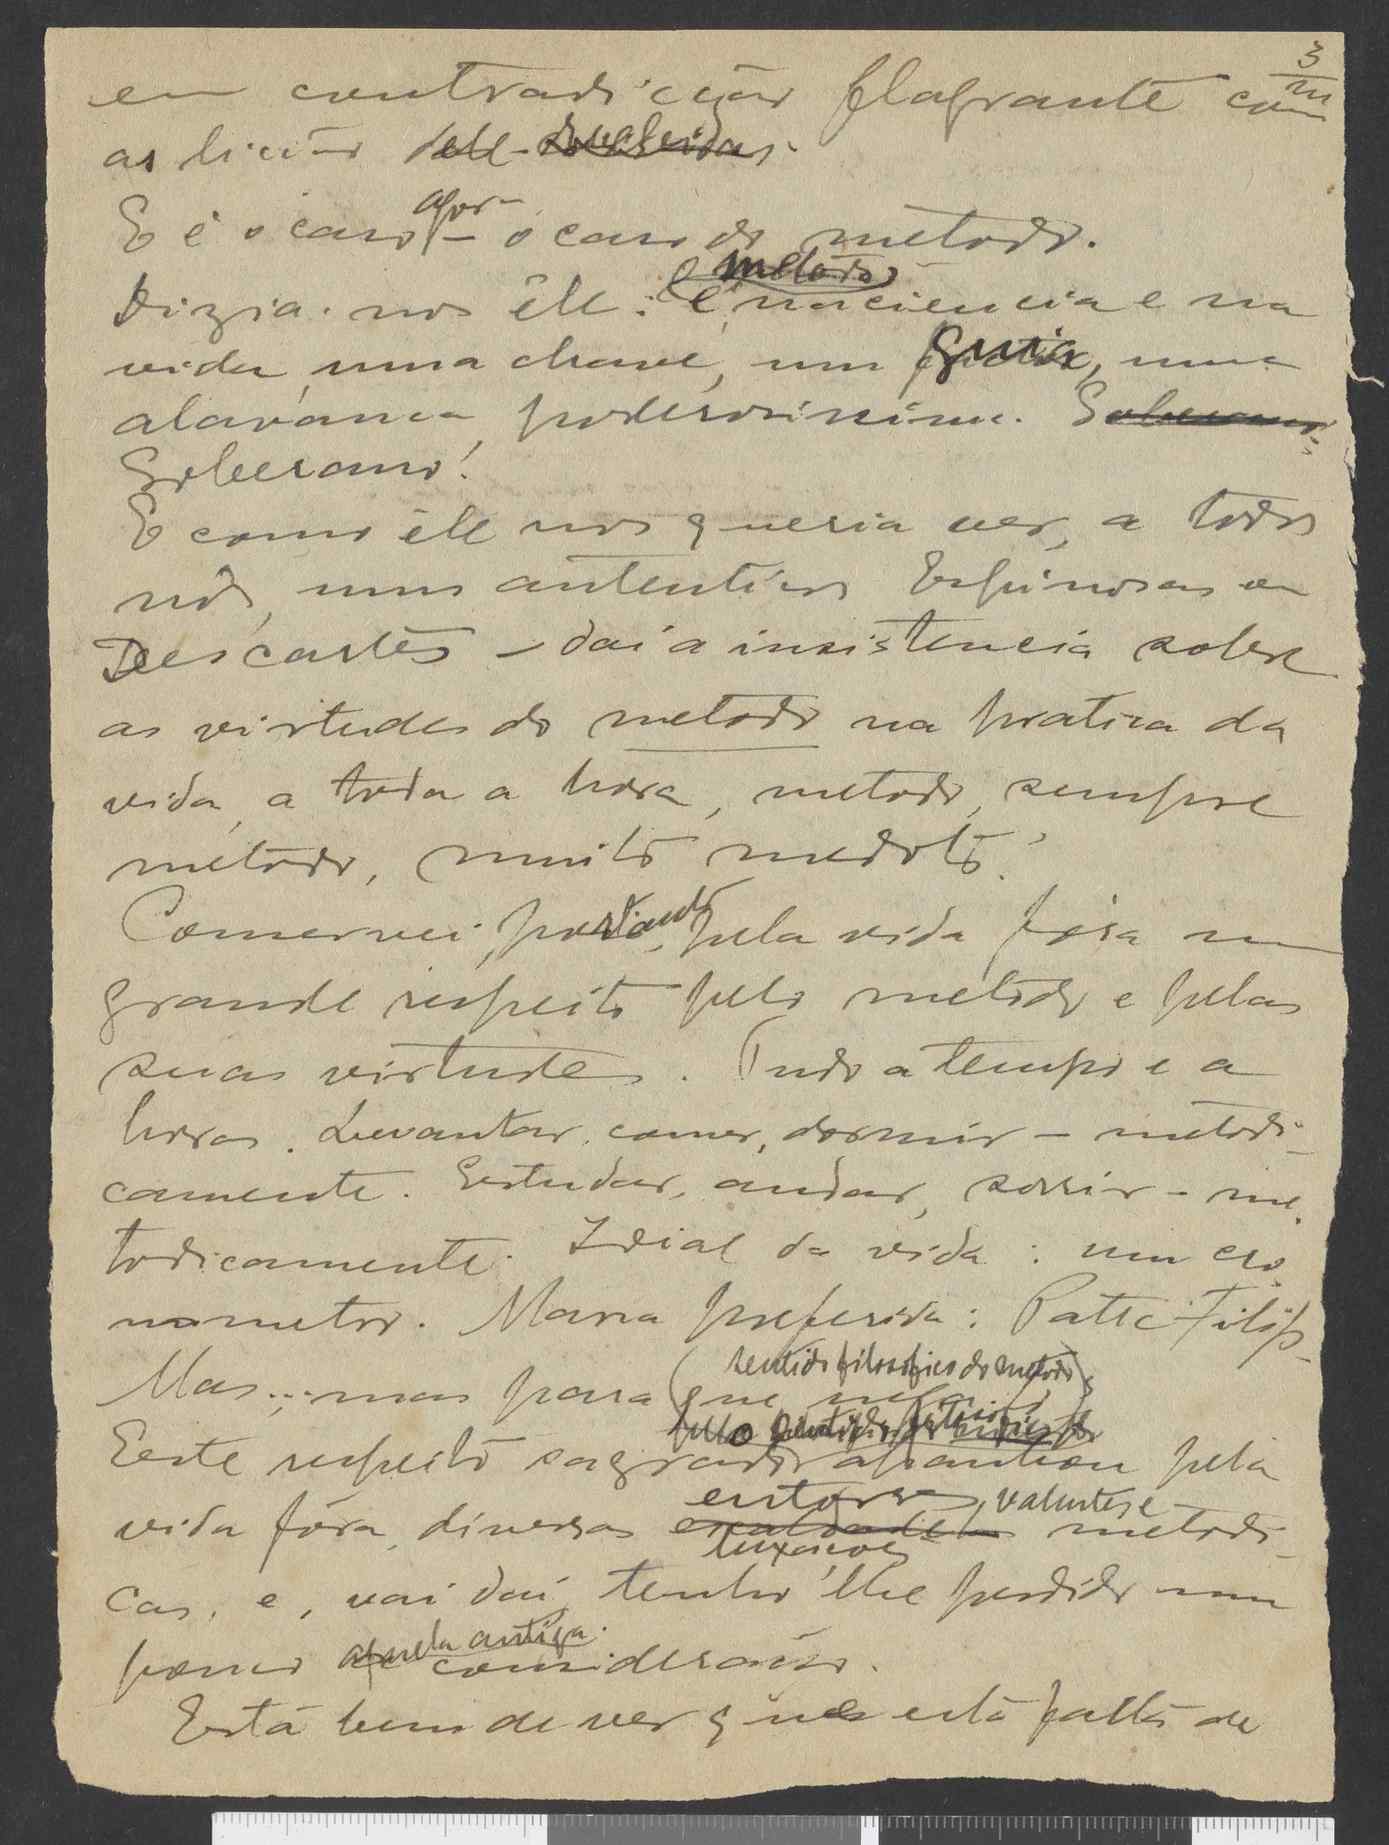 3
em contradição flagrante com
as lições dele recebidas.
E é o caso agora — o caso do metodo.
Dizia-nos êle: O metodo é, na ciencia e na
vida, uma chave, um guia, uma
alavanca, poderosissima. Soberano
Soberano!
E como êle nos queria ver, a todos
nós, uns autenticos Espinosas ou
Descartes — daí a insistencia sobre
as virtudes do metodo na pratica da
vida, a toda a hora, metodo, sempre
metodo, muito medoto!
Conservei, portanto, pela vida fóra um
grande respeito pelo metodo e pelas
suas virtudes. Tudo a tempo e a
horas. Levantar, comer, dormir — metodi-
camente. Estudar, andar, sorrir — me-
todicamente. Idial da vida: um cro-
nometro. Marca preferida: Patte-Filip-
Mas... mas para que
sentido filosofico do metodo
Este respeito sagrado apanhou pela
entorses, valentes e
vida fóra, diversas luxações metodi-
cas, e, vai daí, tenho-lhe perdido um
pouco aquela antiga consideração.
Está bem de ver que esta falta de